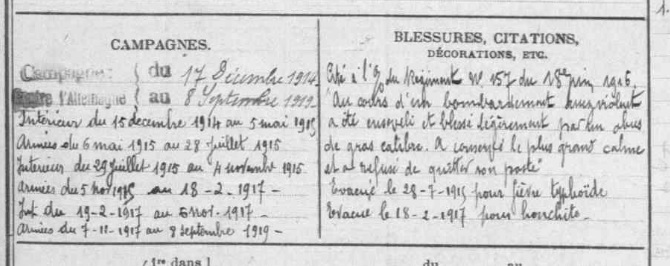 CAMPAGNES.
Campagne { du 17 Décembre 1914
contre l'Allemagne } au 8 Septembre 1919
Intérieur du 15 decembre 1914 au 5 mai 1915
Armées du 6 mai 1915 au 28 Juillet 1915
Interieur du 29 Juillet 1915 au 4 novembre 1915
Armées du 5 nov 1915 au 18-2-1917 -
Int du 19-2-1917 au 6 nov-1917 -
Armées du 7-11-1917 au 8 Septembre 1919 -
BLESSURES, CITATIONS,
DÉCORATIONS, ETC.
Cité à l'O/ du Régiment N° 157 du 18 juin 1916.
"Au cours d'un bombardement violent
a été enseveli et blessé légèrement par un obus
de gros calibre. A conservé le plus grand calme
et a refusé de quitter son poste"
Evacué le 28-7-1915 pour fièvre typhoïde
Evacué le 18-2-1917 pour bronchite -
(1re dans l
du
au